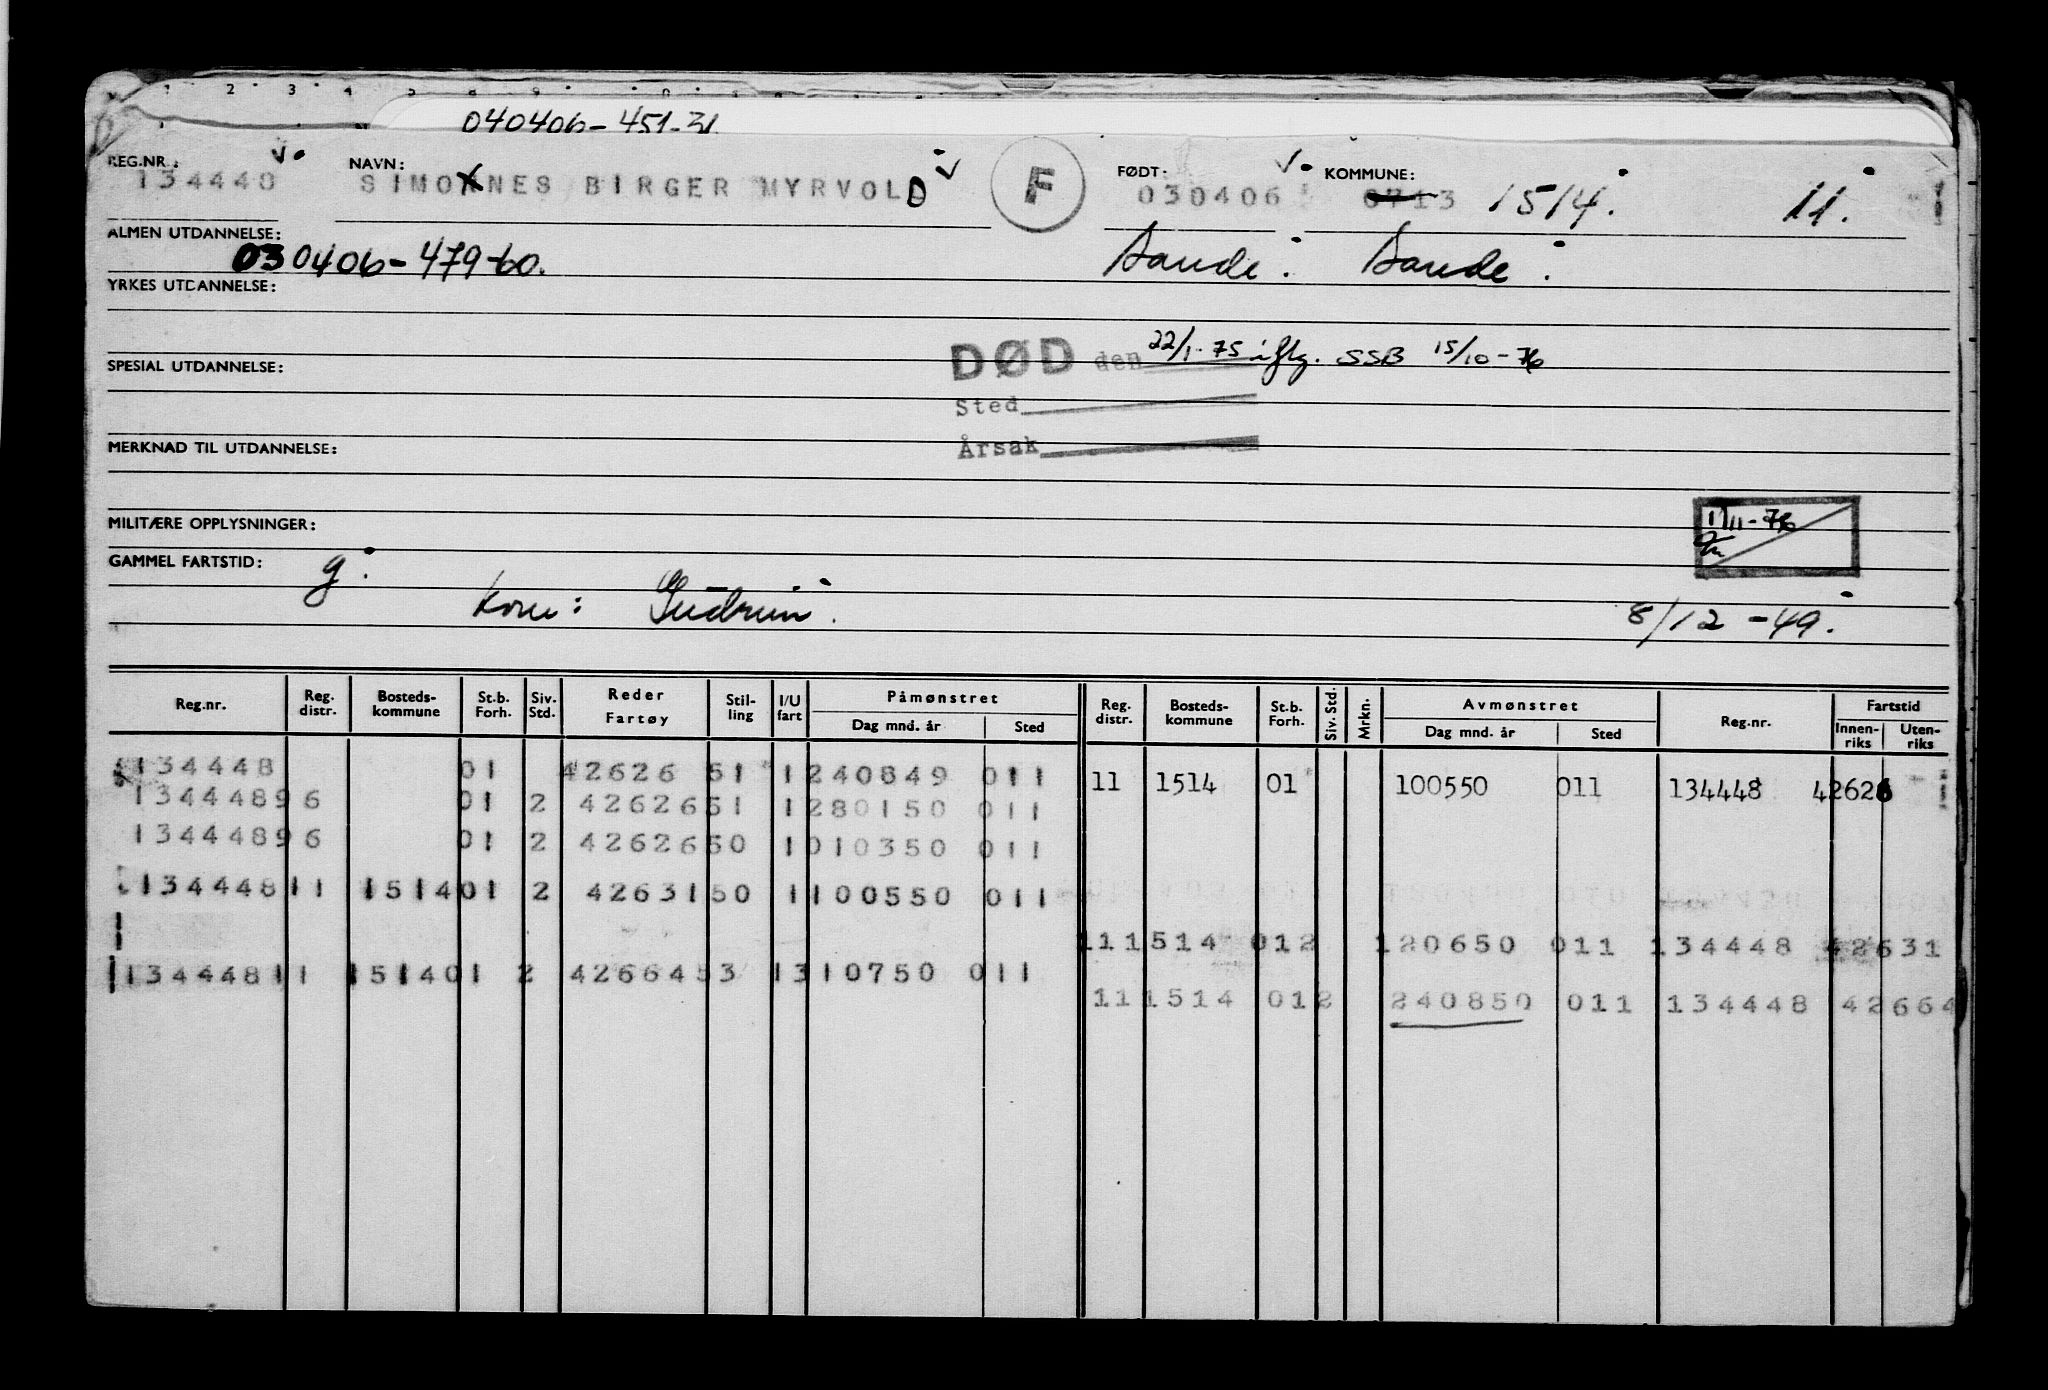 040406-451-31
REG.NR.: NAVN: FØDT: KOMMUNE:
134448 SIMONNES BIRGER MYRVOLD F 030406 0713 1514. 11.
ALMEN UTDANNELSE: 030406-479-60. Sande. Sande.
YRKES UTDANNELSE:
DØD den 22/1-75 iflg. SSB 15/10-76
SPESIAL UTDANNELSE:
Sted
MERKNAD TIL UTDANNELSE: Årsak
MILITÆRE OPPLYSNINGER: 1/11-76
GAMMEL FARTSTID: g.
Kone: Gudrun. 8/12-49.
Reg.nr. Reg. distr. Bosteds-kommune St.b. Forh. Siv. Std. Reder Fartøy Stil-ling I/U fart Påmønstret Dag mnd. år Sted Reg. distr. Bosteds-kommune St.b. Forh. Siv. Std. Mrkn. Avmønstret Dag mnd. år Sted Reg.nr. Fartstid Innen-riks Uten-riks
134448 01 42626 51 1 240849 011 11 1514 01 100550 011 134448 42626
134448 96 01 2 42626 51 1 280150 011
134448 96 01 2 42626 50 1 010350 011
134448 11 1514 01 2 42631 50 1 100550 011
11 1514 01 2 120650 011 134448 42631
134448 11 1514 01 2 42664 53 1 310750 011
11 1514 01 2 240850 011 134448 42664